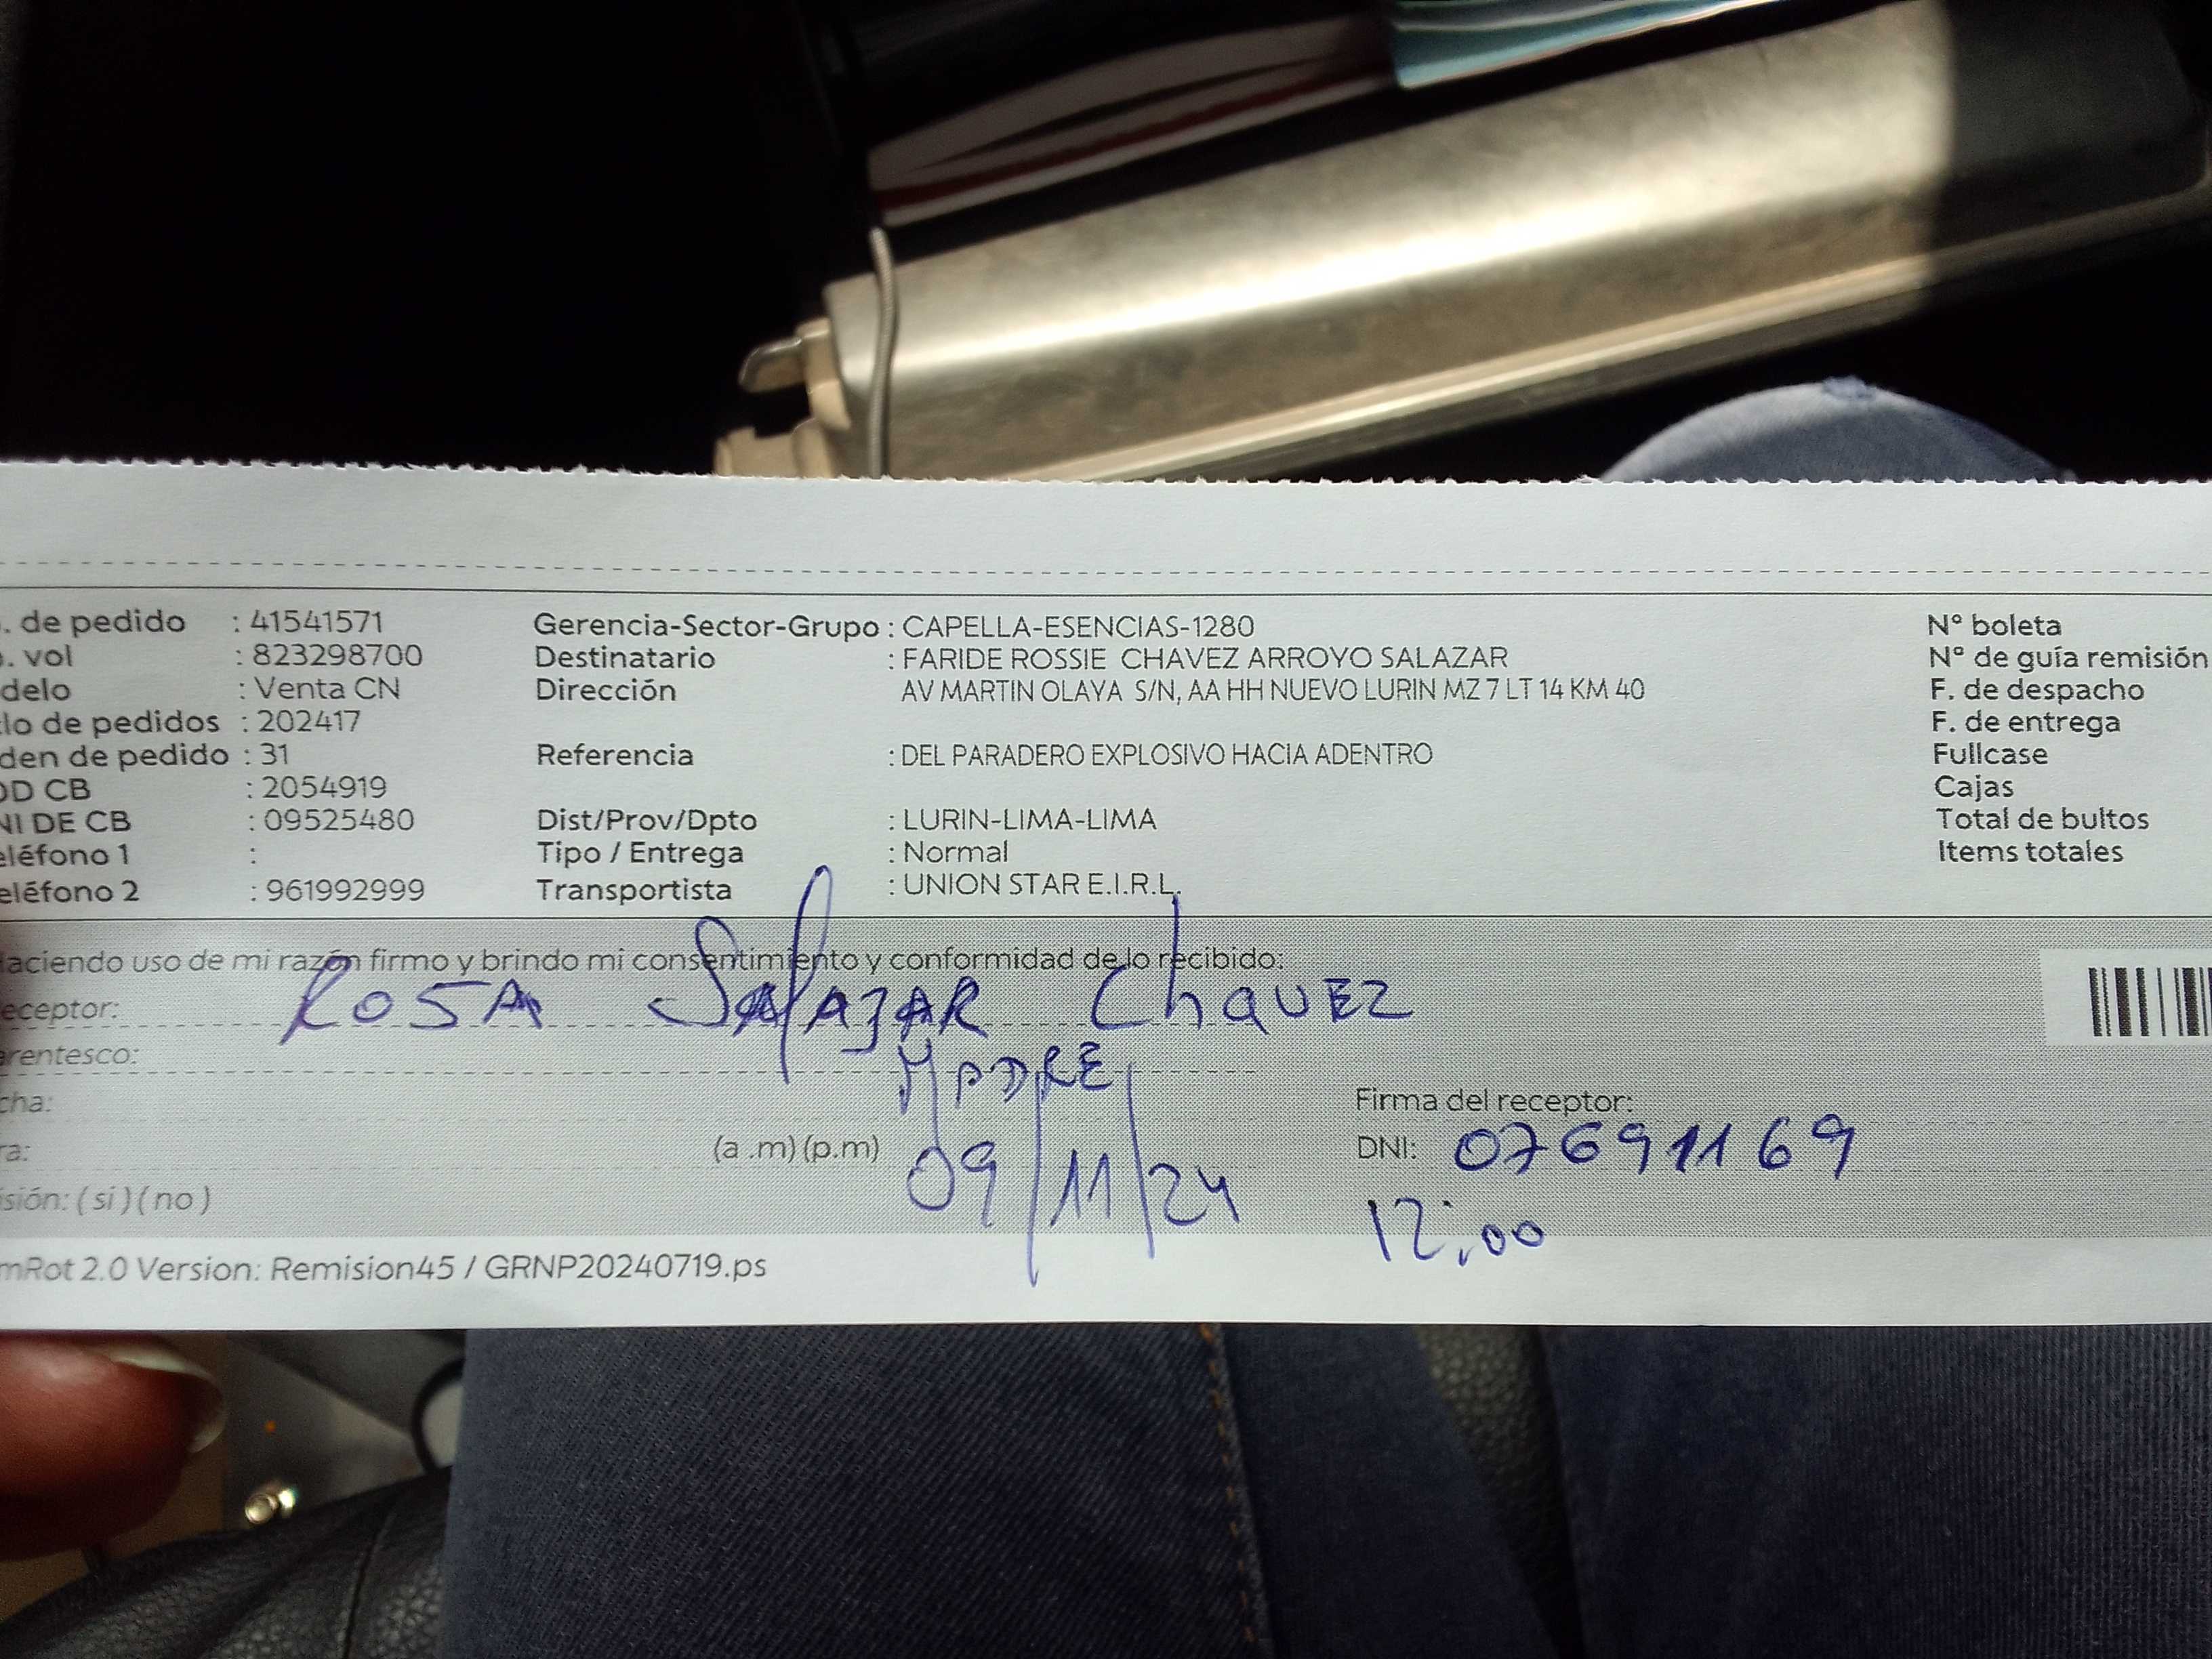 . de pedido : 41541571 Gerencia-Sector-Grupo : CAPELLA-ESENCIAS-1280 N° boleta
. vol : 823298700 Destinatario : FARIDE ROSSIE CHAVEZ ARROYO SALAZAR N° de guía remisión
delo : Venta CN Dirección AV MARTIN OLAYA S/N, AA HH NUEVO LURIN MZ 7 LT 14 KM 40 F. de despacho
lo de pedidos : 202417 F. de entrega
den de pedido : 31 Referencia : DEL PARADERO EXPLOSIVO HACIA ADENTRO Fullcase
OD CB : 2054919 Cajas
NI DE CB : 09525480 Dist/Prov/Dpto : LURIN-LIMA-LIMA Total de bultos
eléfono 1 : Tipo / Entrega : Normal Items totales
eléfono 2 : 961992999 Transportista : UNION STAR E.I.R.L.
aciendo uso de mi razón firmo y brindo mi consentimiento y conformidad de lo recibido:
eceptor: ROSA SALAZAR ChAVEZ
arentesco: MADRE
cha: Firma del receptor:
ra: (a .m) (p.m) 09/11/24 DNI: 07691169
isión: ( si ) ( no ) 12:00
mRot 2.0 Version: Remision45 / GRNP20240719.ps